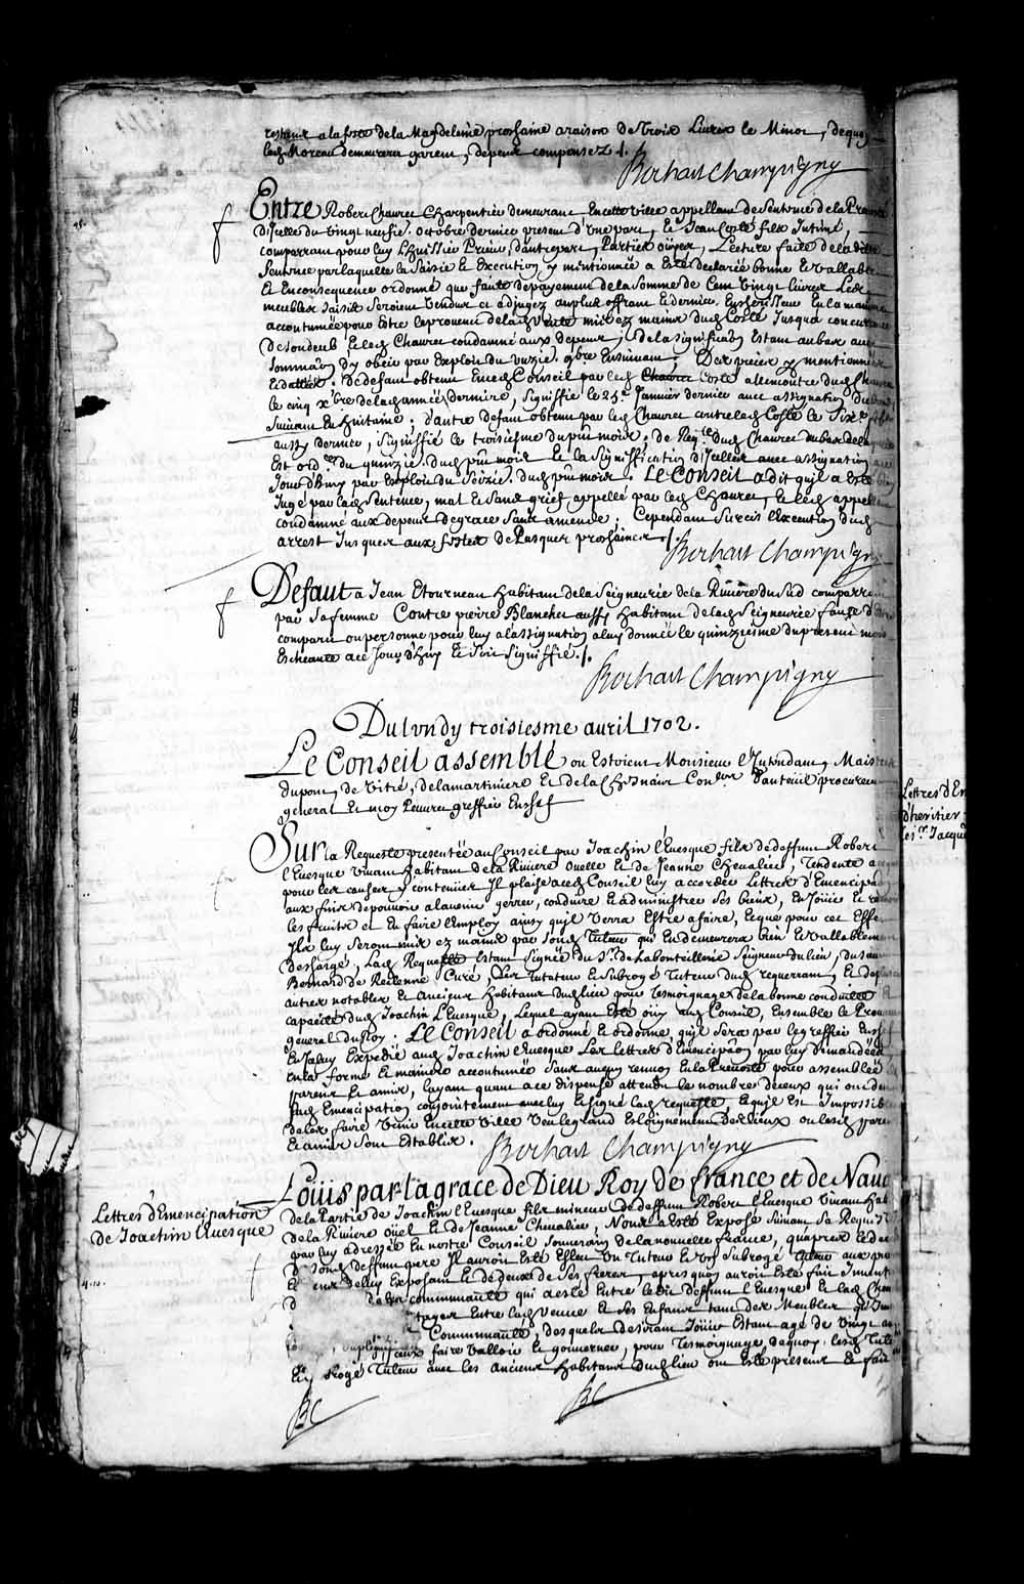 restant a la feste de la Magdeleine prochaine a raison de trois Livres le Minot, de quoy
led. Moreau demeurera garent, depens compensez ./.
Bochart Champigny
Entre Robert Chauret Charpentier demeurant En cette ville appellant de Sentence de la Prevosté
D'Icelle du vingt neufie. octobre dernier present d'Une part, Et Jean Costé fils Intimé,
comparant pour luy L'huissier Prieur, d'autre part, Parties oüyes, Lecture faite de ladite
Sentence par laquelle la Saisie Et Execution y mentionnée a Esté declarée bonne Et vallable
Et En consequence ordonné que faute de payement de la Somme de Cent Vingt livres Les
meubles Saisis Seroient Vendus et adjugez au plus offrant Et dernier Encherisseur En la maniere
accoutumée pour Estre le provenu de lad. Vente mis ez mains dud. Costé Jusqu'a concurrence
De son deub Et led. Chauret condamné aux depens; de la signification Estant au bas avec
Sommaon d'y obeir par Exploit du unzie. 9bre Ensuivant; Des pieces y mentionnées
Et dattées. de defaut obtenu En ced. Conseil par led. Chauret Costé allencontre dud. Chauret
le cinq xbre de lad. année derniere, Signiffié le 25e Janvier dernier avec assignation du
Suivant En huitaine; d'autre defaut obtenu par led. Chauret contre led. Costé le Sixe
aussy dernier, Signiffié le troisiesme du pnt mois; de Reqte dud. Chauret au bas de laquelle
Est ord.ce du quinzie. dud. pnt mois Et la Signiffication d'Icelle avec assignation a
Jourd'huy par Exploit du Seizie. dud. pnt mois. Le Conseil a dit qu'il a Esté bien
Jugé par lad. Sentence, mal Et Sans grief appellé par led. Chauret, Et led. appellant
condamné aux depens de grace Sans amende; Cependant Surcis L'Execution dud.
arrest Jusques aux festes De Pasques prochaines ./.
Bochart Champigny
Defaut a Jean Etourneau habitant de la Seigneurie de la Riviere du Sud comparant
par Sa femme Contre pierre Blanchet aussy habitant de lad. Seigneurie faute d'Estre
comparu ou personne pour luy a l'assignation a luy donnée le quinziesme du present mois
Escheante a ce Jourd'huy Et Soit Signiffié ./.
Bochart Champigny
Du lundy troisiesme avril 1702.
Le Conseil assemblé ou Estoient Monsieur l'Intendant, Maistres
dupont, de Vitré, de la martiniere Et de la Chesnaie Con.ers d'auteüil procureur
general Et moy Peuvret greffier En chef
Sur la Requeste presentée au Conseil par Joachin l'Evesque fils de deffunt Robert
l'Evesque vivant habitant de la Riviere Ouelle Et de Jeanne Chevalier, Tendente a ce que
pour les causes y contenües Il plaise aud. Conseil luy accorder Lettres d'Emencipation
aux fins de pouvoir a l'avenir gerrer, conduire Et administrer ses biens, En Joüir Et recevoir
les fruits et En faire l'Employ ainsy qu'il verra Estre a faire, Et que pour cet Effet
Ils luy Seront mis ez mains par Sond. Tuteur qui En demeurera bien Et vallablement
Deschargé, Lad. Requeste Estant Signée du Sr. de La bouteillerie Seigneur du lieu, du sieur
Bernard de Requeleyne Curé, des tutateur Et Subrogé Tuteur dud. requerant, Et de plusieurs
autres notables Et Anciens habitans dud. lieu pour Tesmoignage de la bonne conduitte Et
capacité dud. Joachin L'Evesque, Lequel ayant Esté oüy aud. Conseil, Ensemble le Procureur
general du Roy. Le Conseil a ordonné Et ordonne qu'il Sera par le greffier En chef
En Iceluy Expedié aud. Joachin l'Evesque Les lettres d'Emencipaon par luy demandées
En la forme Et maniere accoutumée Sans aucun renvoy En la Prevosté pour assembler
parens Et amis, l'ayant quant a ce dispensé attendu le nombre d'iceux qui ont
lad. Emencipation conjointement avec luy Et signé lad. requeste Et qu'il Est Impossible
de les faire venir En cette ville Veu le grand Esloignement Des lieux ou lesd. parens
Et amis Sont Establis.
Bochart Champigny
Lettres d'Emencipation
de Joachim l'Evesque
Loüis par la grace de Dieu Roy de france et de Navarre
de la Partie de Joachin l'Evesque fils mineur de deffunt Robert l'Evesque vivant hab
de la Riviere oüel Et de Jeanne Chevalier, Nous a Esté Exposé Suivant Sa Requeste
par luy adressée En nostre Conseil Souverain de la nouvelle france, qu'apres le deces
d sond. deffunt pere Il auroit Esté Esleu Un Tuteur Et Un Subrogé Tuteur aux pers
Et eux de luy Exposant Et de deux de Ses freres, apres quoy auroit Esté fait Invent
d de la communauté qui a esté Entre led. deffunt l'Evesque Et lad. Chev
tager Entre lad. Veuve Et Ses Enfans tant des Meubles qu'Im
Communauté, desquels desirant Joüir Estant agé de Vingt an
faire valloir Et gouverner, pour Tesmoignage de quoy lesd. Tuteur
rogé Tuteur avec les anciens habitans dud. lieu ont Esté presens Et fait
BC
BC
Lettres d'En
d'heritier
le sr. Jacqu